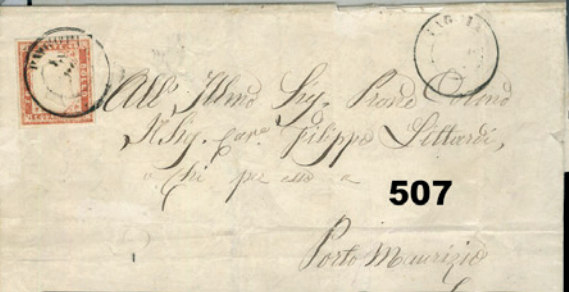 All' Illmo Sig. Prono Colono
Il Sig. Cav. Filippo Littardi,
o chi per esso a
507
Porto Maurizio